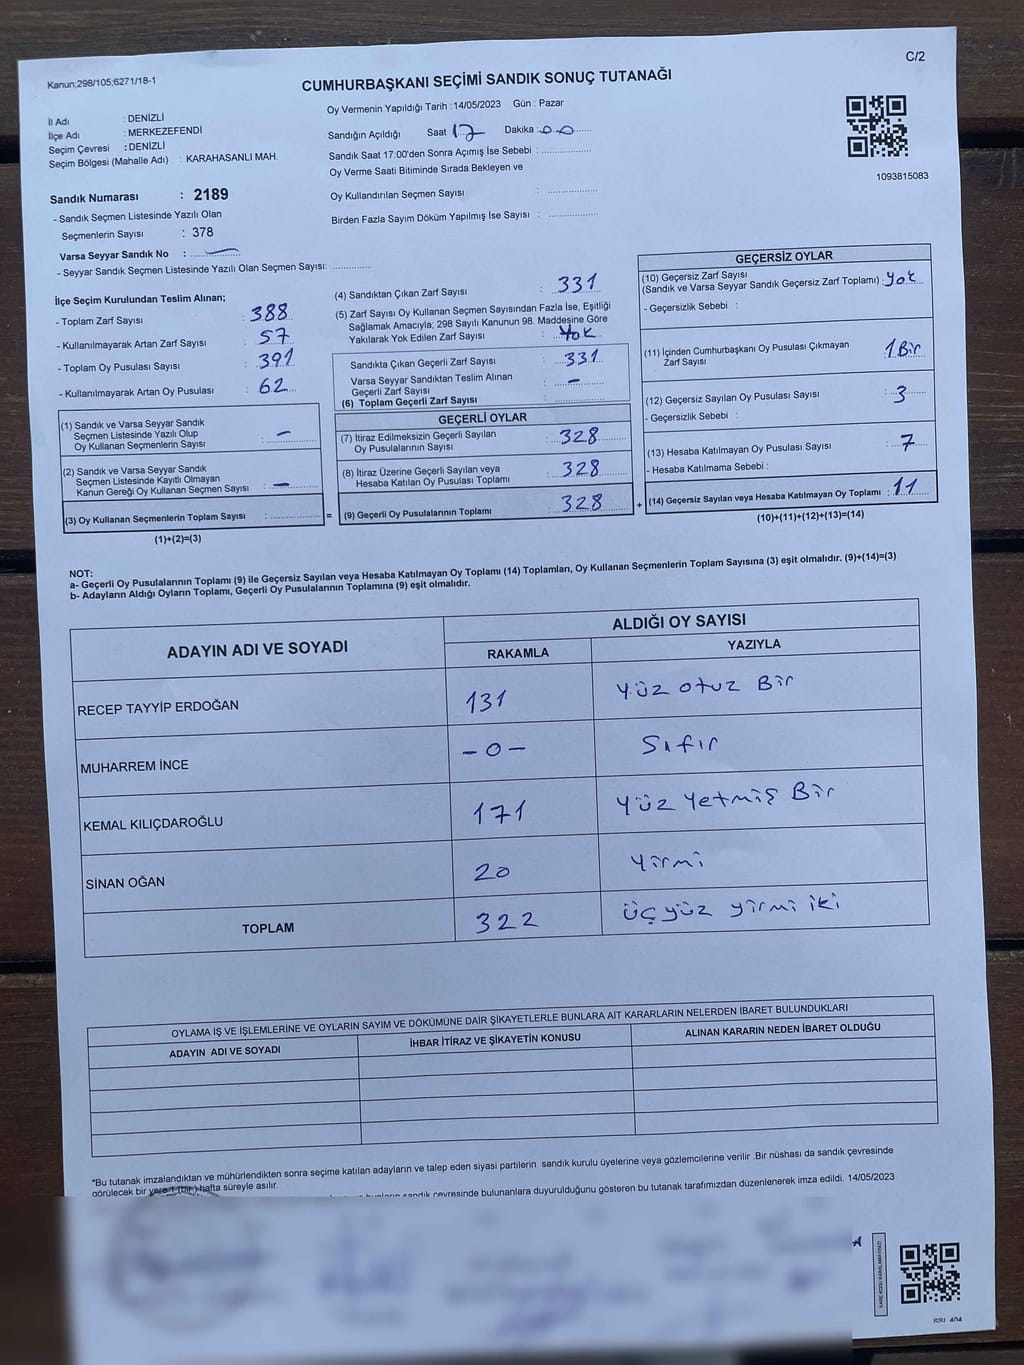 Kanun;298/105;6271/18-1
C/2
CUMHURBAŞKANI SEÇİMİ SANDIK SONUÇ TUTANAĞI
Oy Vermenin Yapıldığı Tarih : 14/05/2023 Gün : Pazar
İl Adı : DENİZLİ
İlçe Adı : MERKEZEFENDİ
Seçim Çevresi : DENİZLİ
Seçim Bölgesi (Mahalle Adı) : KARAHASANLI MAH.
Sandık Numarası : 2189
- Sandık Seçmen Listesinde Yazılı Olan
Seçmenlerin Sayısı : 378
Varsa Seyyar Sandık No : —
- Seyyar Sandık Seçmen Listesinde Yazılı Olan Seçmen Sayısı: ..............
Sandığın Açıldığı Saat 17 Dakika : 00
Sandık Saat 17:00'den Sonra Açımış İse Sebebi : ..............
Oy Verme Saati Bitiminde Sırada Bekleyen ve
Oy Kullandırılan Seçmen Sayısı : ..............
Birden Fazla Sayım Döküm Yapılmış İse Sayısı : ..............
1093815083
İlçe Seçim Kurulundan Teslim Alınan;
- Toplam Zarf Sayısı : 388
- Kullanılmayarak Artan Zarf Sayısı : 57
- Toplam Oy Pusulası Sayısı : 391
- Kullanılmayarak Artan Oy Pusulası : 62
(1) Sandık ve Varsa Seyyar Sandık
Seçmen Listesinde Yazılı Olup
Oy Kullanan Seçmenlerin Sayısı : —
(2) Sandık ve Varsa Seyyar Sandık
Seçmen Listesinde Kayıtlı Olmayan
Kanun Gereği Oy Kullanan Seçmen Sayısı : —
(3) Oy Kullanan Seçmenlerin Toplam Sayısı : .............. =
(1)+(2)=(3)
(4) Sandıktan Çıkan Zarf Sayısı : 331
(5) Zarf Sayısı Oy Kullanan Seçmen Sayısından Fazla İse, Eşitliği
Sağlamak Amacıyla; 298 Sayılı Kanunun 98. Maddesine Göre
Yakılarak Yok Edilen Zarf Sayısı : Yok
Sandıkta Çıkan Geçerli Zarf Sayısı : 331
Varsa Seyyar Sandıktan Teslim Alınan
Geçerli Zarf Sayısı : —
(6) Toplam Geçerli Zarf Sayısı : ..............
GEÇERLİ OYLAR
(7) İtiraz Edilmeksizin Geçerli Sayılan
Oy Pusulalarının Sayısı : 328
(8) İtiraz Üzerine Geçerli Sayılan veya
Hesaba Katılan Oy Pusulası Toplamı : 328
(9) Geçerli Oy Pusulalarının Toplamı : 328 +
GEÇERSİZ OYLAR
(10) Geçersiz Zarf Sayısı
(Sandık ve Varsa Seyyar Sandık Geçersiz Zarf Toplamı) : Yok
- Geçersizlik Sebebi :
(11) İçinden Cumhurbaşkanı Oy Pusulası Çıkmayan
Zarf Sayısı : 1 Bir
(12) Geçersiz Sayılan Oy Pusulası Sayısı : 3
- Geçersizlik Sebebi :
(13) Hesaba Katılmayan Oy Pusulası Sayısı : 7
- Hesaba Katılmama Sebebi :
(14) Geçersiz Sayılan veya Hesaba Katılmayan Oy Toplamı : 11
(10)+(11)+(12)+(13)=(14)
NOT:
a- Geçerli Oy Pusulalarının Toplamı (9) ile Geçersiz Sayılan veya Hesaba Katılmayan Oy Toplamı (14) Toplamları, Oy Kullanan Seçmenlerin Toplam Sayısına (3) eşit olmalıdır. (9)+(14)=(3)
b- Adayların Aldığı Oyların Toplamı, Geçerli Oy Pusulalarının Toplamına (9) eşit olmalıdır.
ADAYIN ADI VE SOYADI ALDIĞI OY SAYISI
RAKAMLA YAZIYLA
RECEP TAYYİP ERDOĞAN 131 Yüz otuz Bir
MUHARREM İNCE - 0 - Sıfır
KEMAL KILIÇDAROĞLU 171 Yüz Yetmiş Bir
SİNAN OĞAN 20 Yirmi
TOPLAM 322 üçyüz yirmi iki
OYLAMA İŞ VE İŞLEMLERİNE VE OYLARIN SAYIM VE DÖKÜMÜNE DAİR ŞİKAYETLERLE BUNLARA AİT KARARLARIN NELERDEN İBARET BULUNDUKLARI
ADAYIN ADI VE SOYADI İHBAR İTİRAZ VE ŞİKAYETİN KONUSU ALINAN KARARIN NEDEN İBARET OLDUĞU
*Bu tutanak imzalandıktan ve mühürlendikten sonra seçime katılan adayların ve talep eden siyasi partilerin sandık kurulu üyelerine veya gözlemcilerine verilir .Bir nüshası da sandık çevresinde
görülecek bir yere 1 (bir) hafta süreyle asılır.
sandık çevresinde bulunanlara duyurulduğunu gösteren bu tutanak tarafımızdan düzenlenerek imza edildi. 14/05/2023